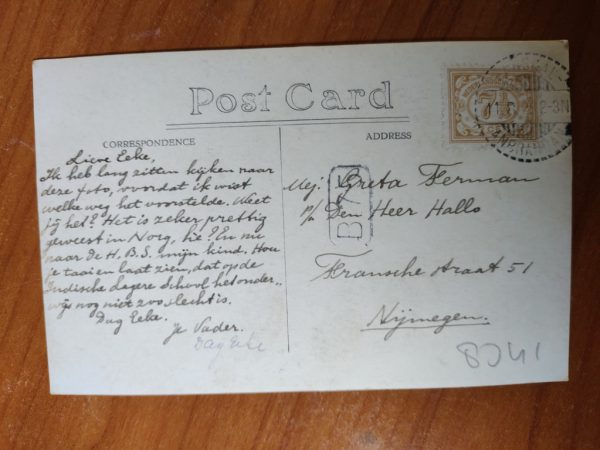 Post Card
CORRESPONDENCE
ADDRESS
Lieve Eeke,
Ik heb lang zitten kijken naar
deze foto, voordat ik wist
welke weg het voorstelde. Weet
jij het? Het is zeker prettig
geweest in Norg, hè? En nu
naar de H.B.S. mijn kind. Hou
je taai en laat zien, dat op de
Indische lagere School het onder-
wijs nog niet zoo slecht is.
Dag Eeke.
je Vader.
Dag Eeke
Mej. Greta Ferman
p/a Den Heer Hallo
Fransche straat 51
Nijmegen.
7½
2-3N